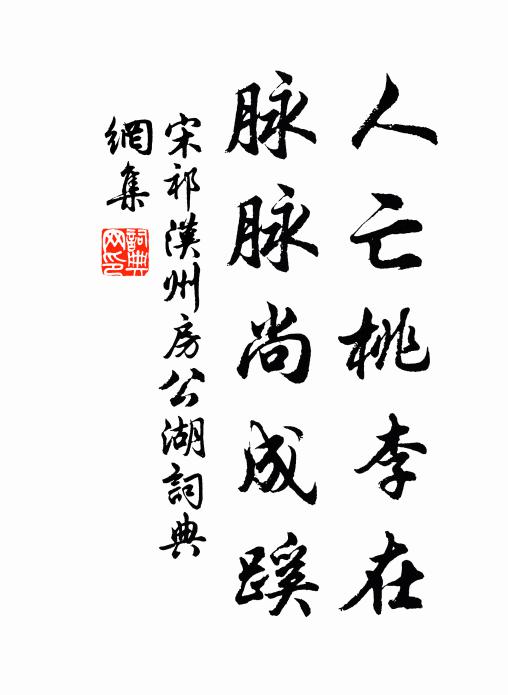 人亡桃李在
脉脉尚成蹊
宋祁漢州房公湖詞典
網集
詞典網印